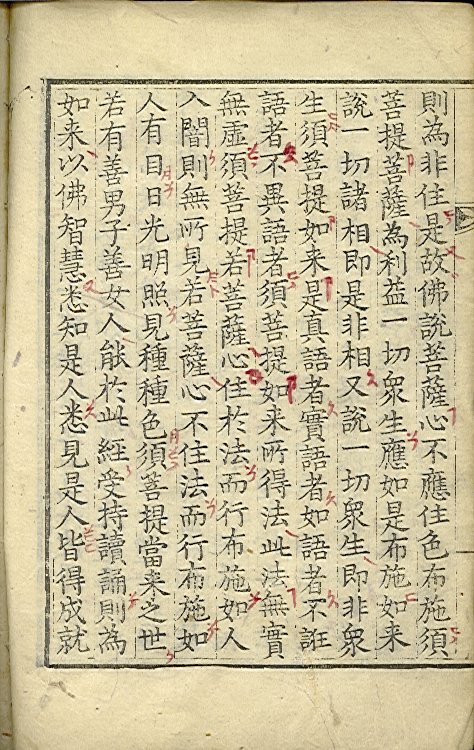 則為非住是故佛說菩薩心不應住色布施須
菩提菩薩為利益一切衆生應如是布施如来
說一切諸相即是非相又說一切衆生即非衆
生須菩提如来是真語者實語者如語者不誑
語者不異語者須菩提如来所得法此法無實
無虛須菩提若菩薩心住於法而行布施如人
入闇則無所見若菩薩心不住法而行布施如
人有目日光明照見種種色須菩提當来之世
若有善男子善女人能於此經受持讀誦則為
如来以佛智慧悉知是人悉見是人皆得成就